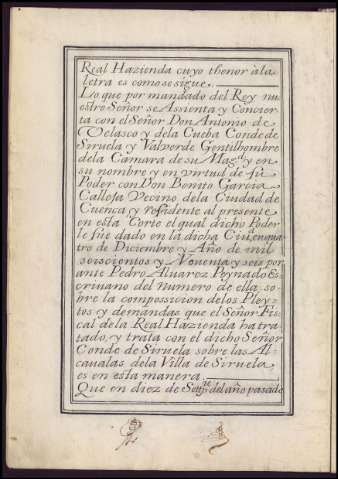 Real Hazienda cuyo thenor àla
letra es como se sigue.
Lo que por mandado del Rey nu
estro Señor se Assienta y Concier
ta con el Señor Don Antonio de
Velasco y dela Cueba Conde de
Siruela y Valverde Gentilhombre
dela Camara de su Mag.d y en
su nombre y en virtud de su
Poder con Don Bonito Garcia
Calleja Vecino dela Ciudad de
Cuenca y residente al presente
en esta Corte el qual dicho Poder
le fue dado en la dicha Ciu.d en qua
tro de Diziembre y Año de mil
seiscientos y Noventa y seis por
ante Pedro Alvarez Peynado Es
crivano del numero de ella so
bre la composicion delos Pley
tos y demandas que el Señor Fis
cal dela Real Hazienda ha tra
tado, y trata con el dicho Señor
Conde de Siruela sobre las Al
caualas dela Villa de Siruela
es en esta manera
Que en diez de del año pasado